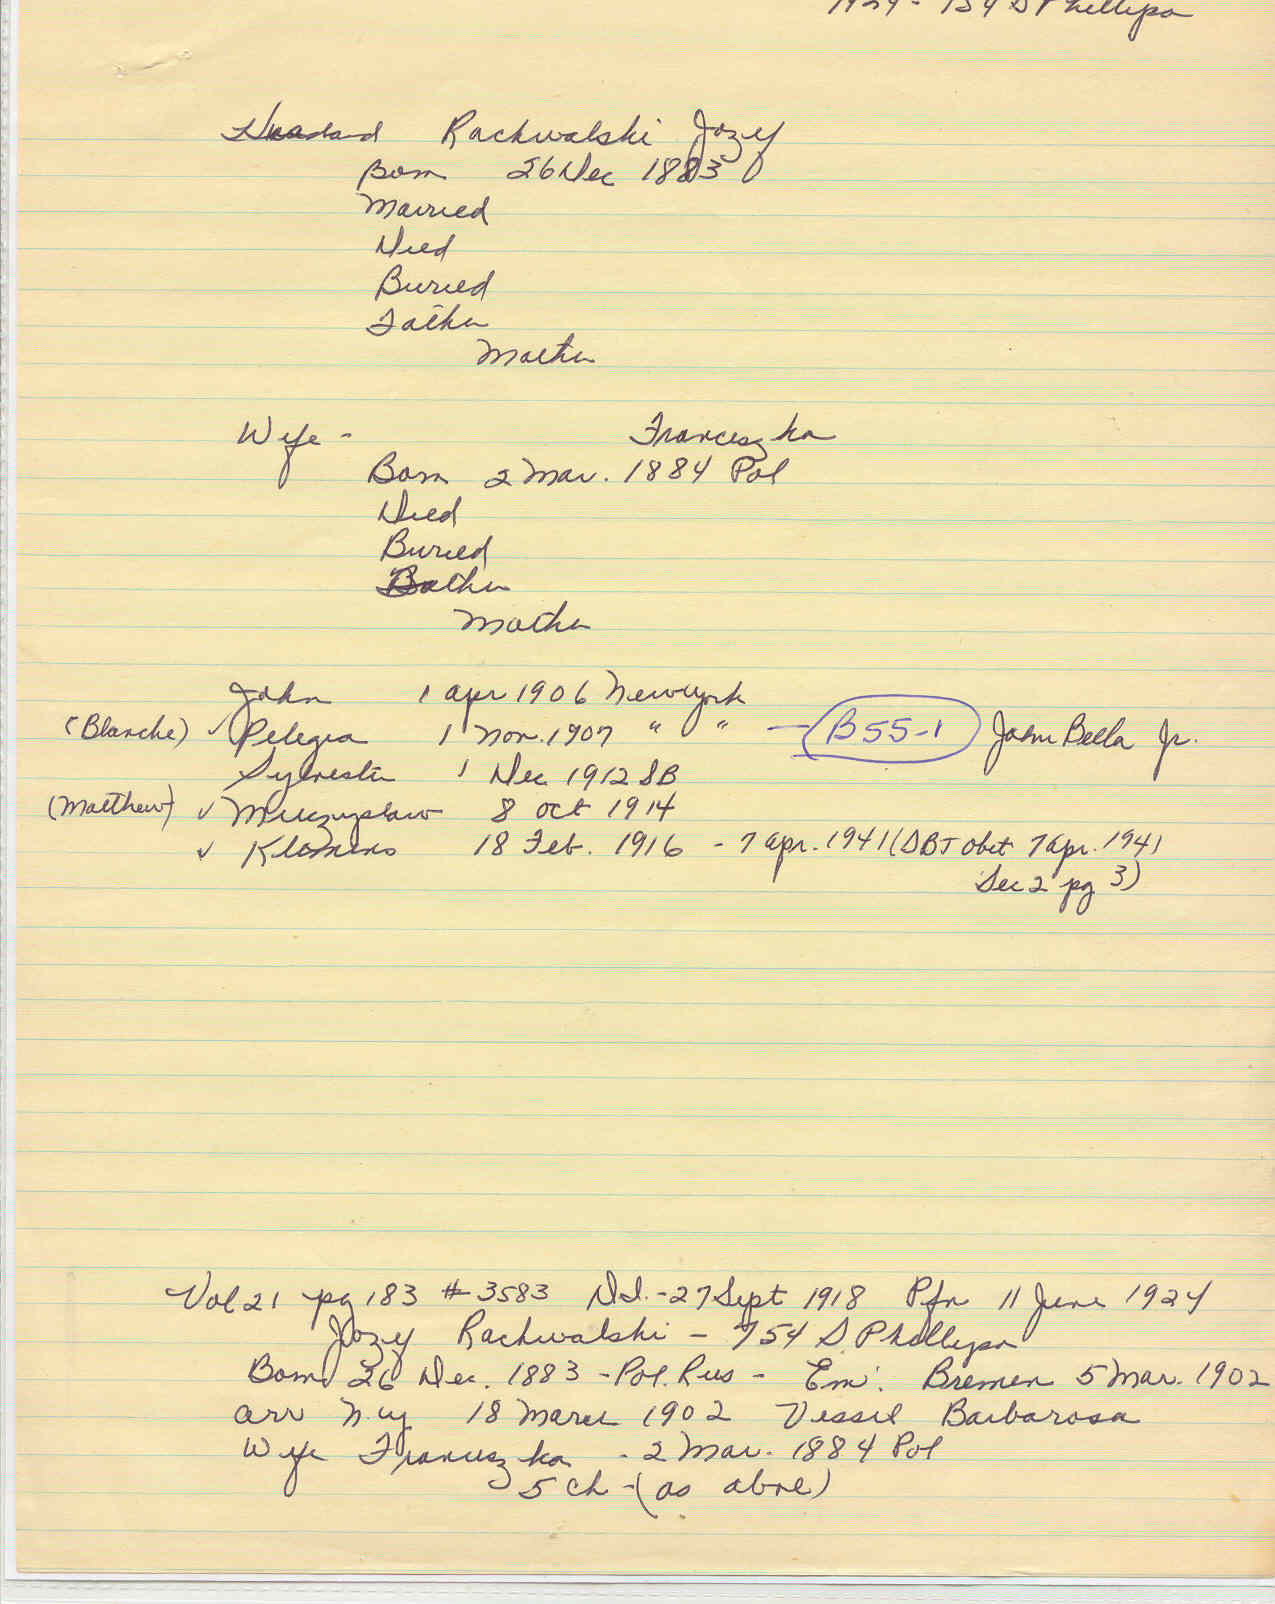 1924 - 754 S Phillipa
Husband Rachwalski Jozef
Born 26 Dec 1883
Married
Died
Buried
Father
Mother
Wife - Franciszka
Born 2 Mar. 1884 Pol
Died
Buried
Father
Mother
John 1 Apr 1906 New York
(Blanche) ✓ Pelegia 1 Nov. 1907 " " - B55-1 John Bella Jr.
Sylvester 1 Dec 1912 SB
(Matthew) ✓ Mieczyslaw 8 Oct 1914
✓ Klemens 18 Feb. 1916 - 7 Apr. 1941 (SBT obit 7 Apr. 1941
Sec 2 pg 3)
Vol 21 pg 183 # 3583 D.I. - 27 Sept 1918 Ptn 11 June 1924
Jozef Rachwalski - 754 S. Phillipa
Born 26 Dec. 1883 - Pol. Rus - Em. Bremen 5 Mar. 1902
arr N.Y 18 March 1902 Vessel Barbarosa
Wife Franciszka - 2 Mar. 1884 Pol
5 ch - (as above)